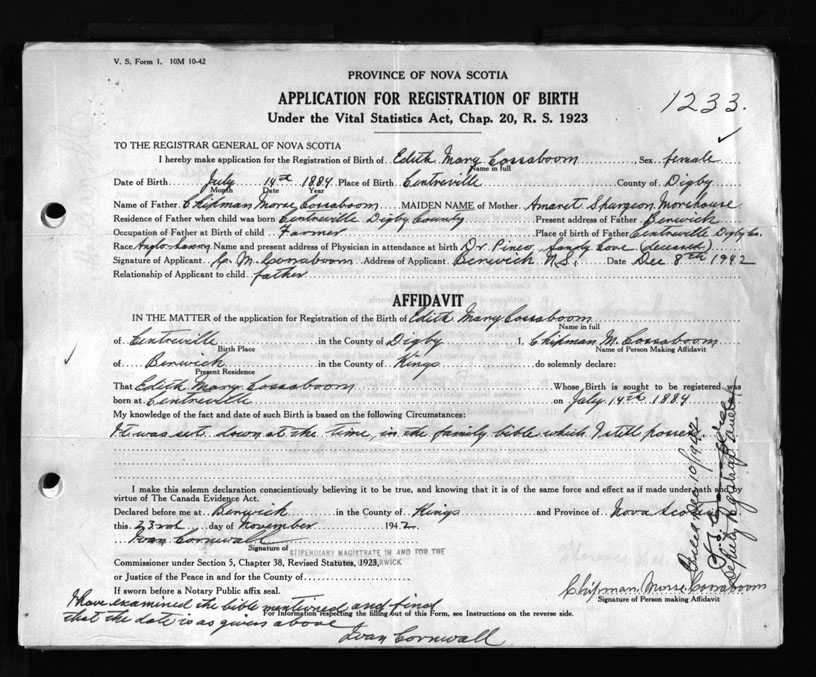 V. S. Form 1. 10M 10-42
PROVINCE OF NOVA SCOTIA
1233.
APPLICATION FOR REGISTRATION OF BIRTH
Under the Vital Statistics Act, Chap. 20, R. S. 1923
TO THE REGISTRAR GENERAL OF NOVA SCOTIA
I hereby make application for the Registration of Birth of Edith Mary Cossaboom, Sex female
Name in full
Date of Birth July 14th 1884 Place of Birth Centreville County of Digby
Month Date Year
Name of Father Chipman Morse Cossaboom MAIDEN NAME of Mother Amaret Spurgeon Morehouse
Residence of Father when child was born Centreville Digby County Present address of Father Berwick
Occupation of Father at Birth of child Farmer Place of birth of Father Centreville Digby Co.
Race Anglo-Saxong Name and present address of Physician in attendance at birth Dr Pineo, Sandy Cove (deceased)
Signature of Applicant C. M. Cossaboom Address of Applicant Berwick N.S. Date Dec 8th 1942
Relationship of Applicant to child father
AFFIDAVIT
IN THE MATTER of the application for Registration of the Birth of Edith Mary Cossaboom
Name in full
of Centreville in the County of Digby I, Chipman M. Cossaboom
Birth Place Name of Person Making Affidavit
of Berwick in the County of Kings do solemnly declare:
Present Residence
That Edith Mary Cossaboom Whose Birth is sought to be registered was
born at Centreville on July 14th 1884
My knowledge of the fact and date of such Birth is based on the following Circumstances:
It was set down at the time, in the family bible which I still possess.
I make this solemn declaration conscientiously believing it to be true, and knowing that it is of the same force and effect as if made under oath and
virtue of The Canada Evidence Act.
Declared before me at Berwick in the County of Kings and Province of Nova Scotia
this 23rd day of November 1942
Ivan Cornwall
Signature of
STIPENDIARY MAGISTRATE IN AND FOR THE
Commissioner under Section 5, Chapter 38, Revised Statutes, 1923, BERWICK
or Justice of the Peace in and for County of
If sworn before a Notary Public affix seal.
Chipman Morse Cossaboom
Signature of Person making Affidavit
For Information respecting the filling out of this Form, see Instructions on the reverse side.
I have examined the bible mentioned and find
that the date is as given above
Ivan Cornwall
Dec 10/1942
Deputy Registrar General